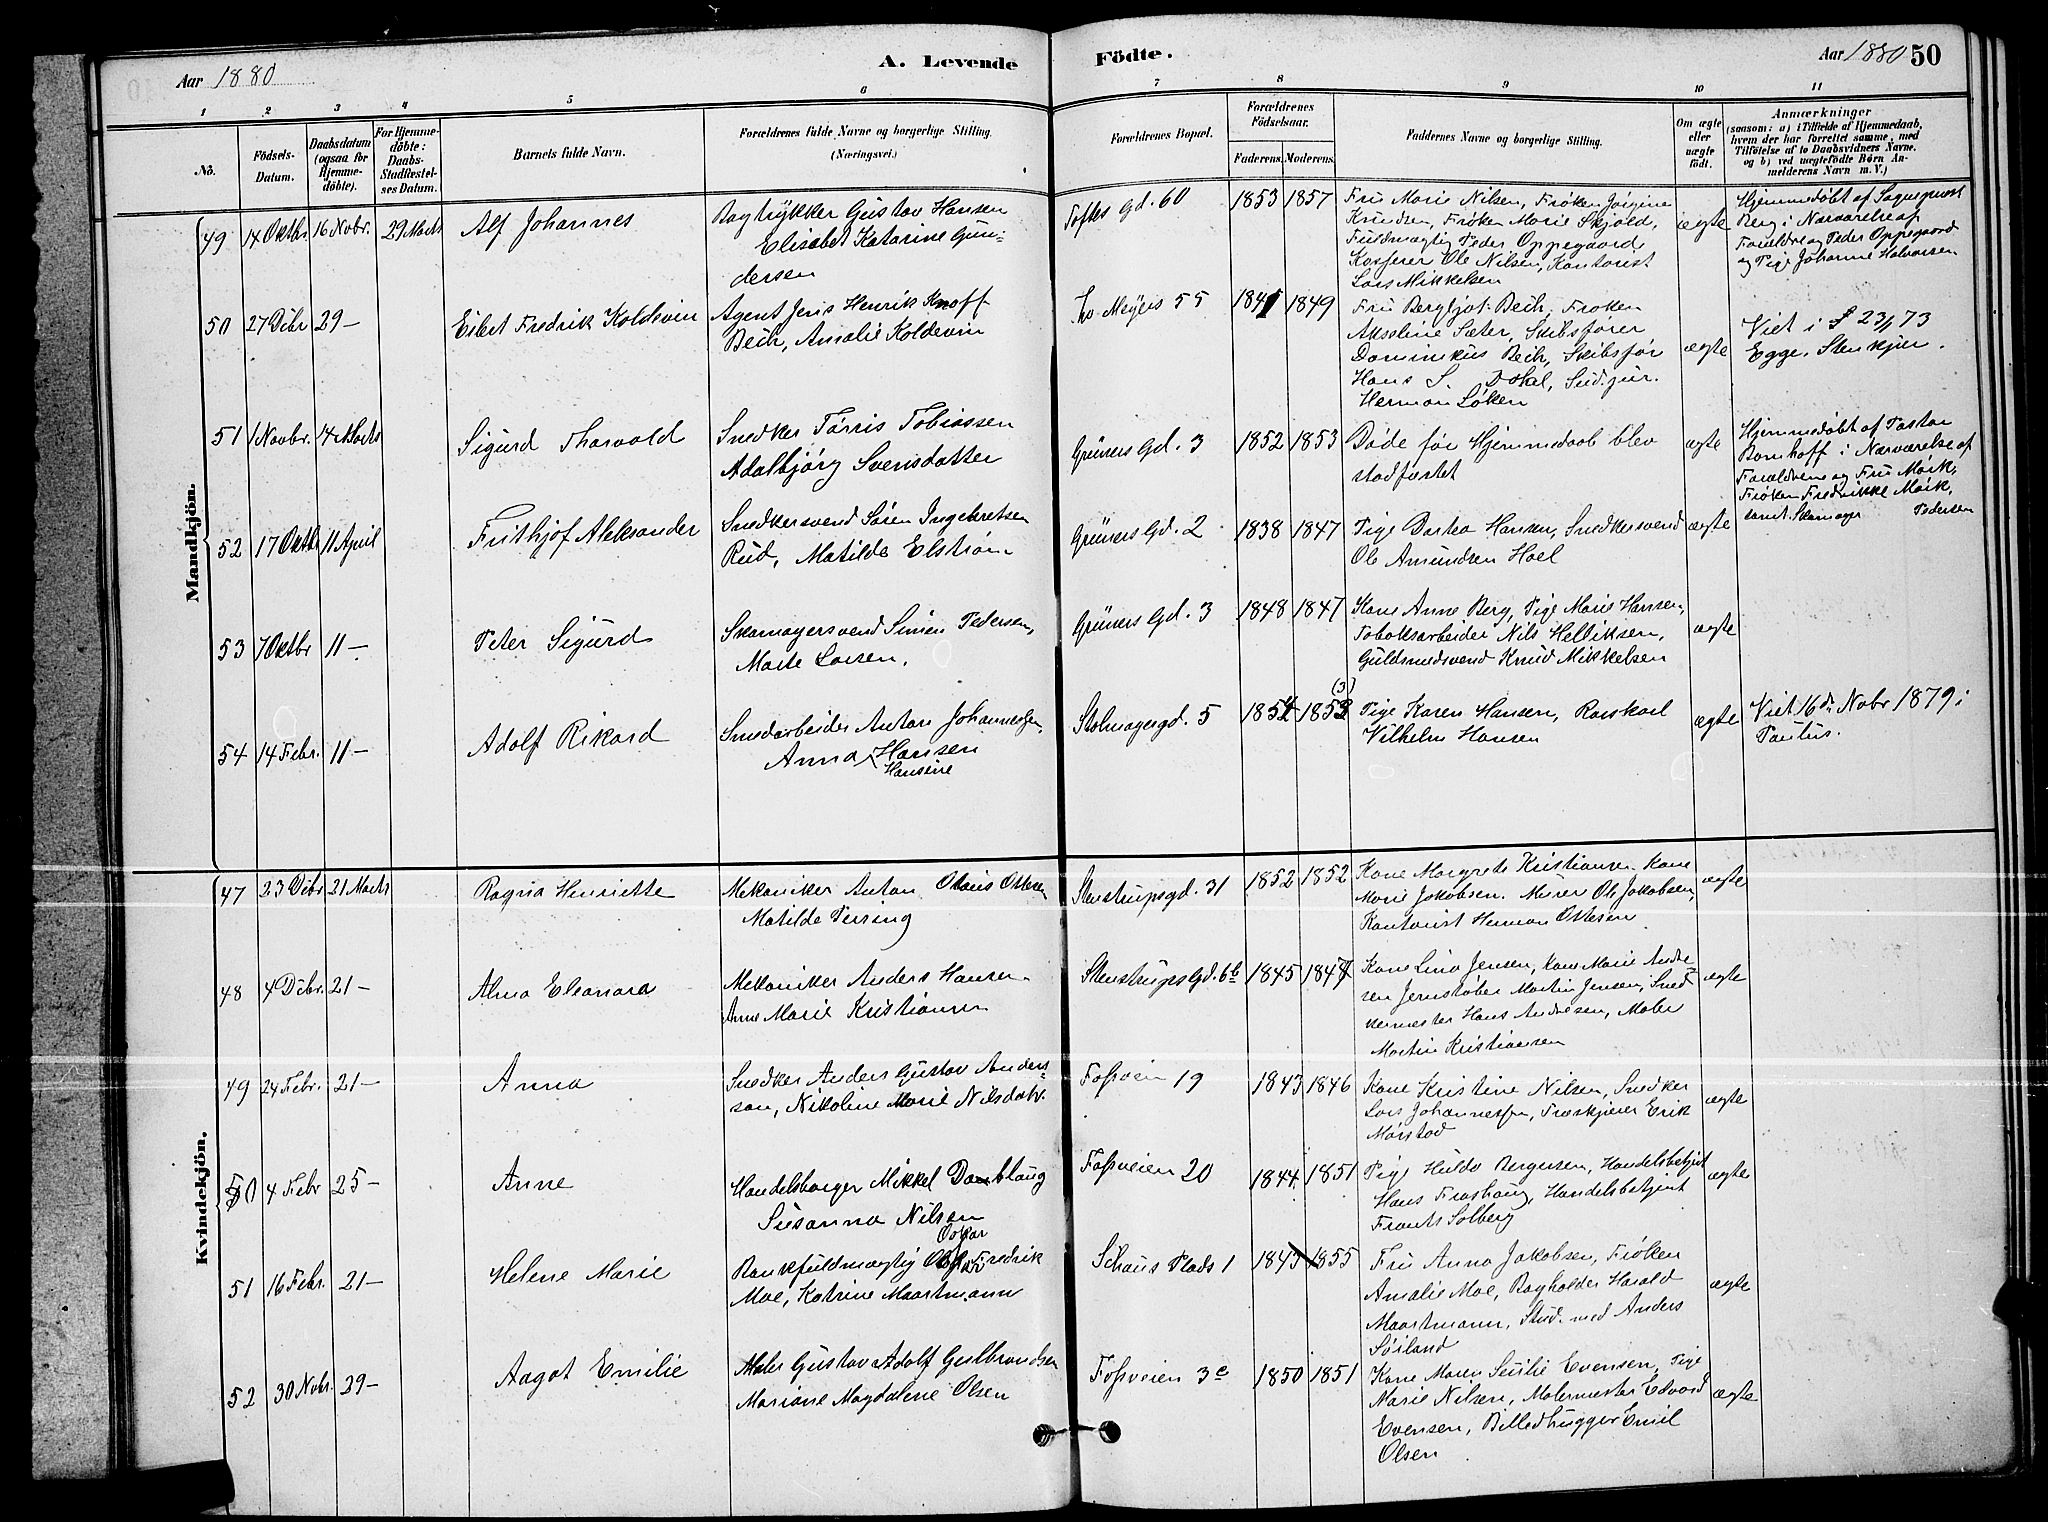 Aar 1880
A. Levende
Födte.
Aar 1880 50
1 2 3 4 5 6 7 8 9 10 11
No.
Födsels-
Datum.
Daabsdatum
(ogsaa för
Hjemme-
döbte).
For Hjemme-
döbte:
Daabs-
Stadfæstel-
ses Datum.
Barnets fulde Navn.
Forældrenes fulde Navne og borgerlige Stilling.
(Næringsvei.)
Forældrenes Bopæl.
Forældrenes
Födselsaar.
Faderens. Moderens.
Faddernes Navne og borgerlige Stilling.
Om ægte
eller
uægte
födt.
Anmærkninger
(saasom: a) i Tilfælde af Hjemmedaab,
hvem der har forrettet samme, med
Tilföielse af to Daabsvidners Navne,
og b) ved uægtefödte Börn An-
melderens Navn m. V.)
Mandkjön.
49 14 Oktbr. 16 Novbr. 29 Marts
Alf Johannes
Bogtrykker Gustav Hansen
Elisabet Katarine Gun-
dersen
Toftes Gd. 60
1853 1857
Fru Marie Nilsen, Frøken Jørgine
Knudsen, Frøken Marie Skjold,
Fuldmægtig Peder Oppegaard
Kasserer Ole Nilsen, Kontorist
Lars Mikkelsen
ægte
Hjemmedøbt af Sogneprest
Berg i Nærværelse af
Forældre og Peder Oppegaard
og Pige Johanne Halvorsen
50 27 Dcbr 29 –
Eibet Fredrik Koldevin
Agent Jens Henrik Knoff
Bech, Amalie Koldevin
Tv. Meyers 55
1841 1849
Fru Bergljot Bech, Frøken
Akseline Sæter, Skibsfører
Dominikus Bech, Skibsfør
Hans S. Dahl, Stud. jur.
Herman Løken
ægte
Viet i S 23/1 73
Egge. Stenkjær.
51 1 Novbr. 14 Marts
Sigurd Thorvald
Snedker Tørris Tobiassen
Adalbjörg Svensdatter
Grüners Gd. 3
1852 1853
Døde før Hjemmedaab blev
stadfæstet
ægte
Hjemmedøbt af Pastor
Bomhoff i Nærværelse af
Forældrene og Fru Mørk,
Frøken Fredrikke Mørk,
samt Skomager Pedersen
52 17 Oktbr 11 April
Frithjof Aleksander
Snedkersvend Søren Ingebretsen
Rud, Matilde Elstrøm
Grüners Gd. 2
1838 1847
Pige Dortea Hansen, Snedkersvend
Ole Amundsen Hoel
ægte
53 7 Oktbr 11 –
Peter Sigurd
Skomagersvend Simen Pedersen,
Marte Larsen.
Grüners Gd. 3
1848 1847
Kone Anne Berg, Pige Marie Hansen,
Tobaksarbeider Nils Helliksen,
Guldsmedsvend Knud Mikkelsen
ægte
54 14 Febr. 11 –
Adolf Rikard
Smedarbeider Anton Johannessen,
Anna Hansen
Hansine
Stolmagergd. 5
1854 1853
(3)
Pige Karen Hansen, Rorskarl
Vilhelm Hansen
ægte
Viet 16de Nobr 1879 i
Paulus.
Kvindekjön.
47 23 Dcbr 21 Marts
Ragna Henriette
Mekaniker Anton Olaus Ottesen
Matilde Persing
Stenstrupsgd. 31
1852 1852
Kone Margrete Kristiansen. Kone
Marie Jakobsen. Murer Ole Jakobsen,
Kontorist Herman Ottesen
ægte
48 4 Dcbr. 21 –
Alma Eleonora
Mekaniker Anders Hansen
Anne Marie Kristiansen
Stenstrups Gd. 6b
1845 1847
Kone Lina Jensen, Kone Marie Andre
sen Jernstøber Martin Jensen, Sned
kermester Hans Andresen, Maler
Martin Kristiansen
ægte
49 24 Febr. 21 –
Anna
Snedker Anders Gustav Anders-
son, Nikoline Marie Nilsdatr.
Fossveien 19
1843 1846
Kone Kristine Nilsen, Snedker
Lars Johannessen, Træskjærer Erik
Mørstad
ægte
50 4 Febr 25 –
Anne
Handelsborger Mikkel Domblaug
Susanna Nilsen
Fossveien 20
1844. 1851
Pige Hulda Bergersen, Handelsbetjent
Hans Froshaug, Handelsbetjent
Frants Solberg
ægte
51 16 Febr. 21 –
Helene Marie
Oskar
Bankfuldmægtig Fredrik
Moe, Katrine Maartmann
Schous Plads 1
1843 1855
Fru Anna Jakobsen, Frøken
Amalie Moe, Bogholder Harald
Maartmann, Stud. med Anders
Søiland
ægte
52 30 Nobr. 29 –
Aagot Emilie
Maler Gustav Adolf Gulbrandsen
Mariane Magdalene Olsen
Fossveien 3c
1850 1851
Kone Maren Seulie Evensen, Pige
Marie Nilsen, Malermester Edvard
Evensen, Billedhugger Emil
Olsen
ægte